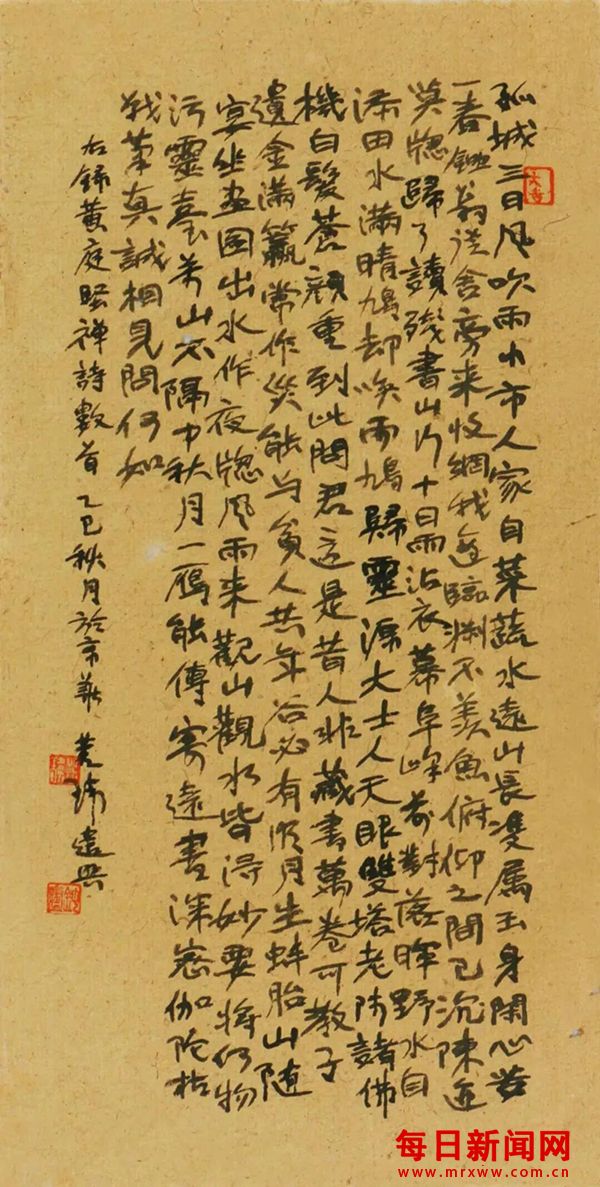 孤城三日风吹雨小市人家自菜蔬水遠山長雙属玉身閑心苦
一舂鋤翁從舍旁来收網我適臨渊不羡魚俯仰之間已沉陳迹
莫牕歸了讀殘書山行十日雨沾衣幕阜峰前對落暉野水自
添田水滿晴鳩却唤雨鳩歸靈源大士人天眼雙塔老師諸佛
機白髮蒼顔重到此問君這是昔人非藏書萬卷可教子
遺金滿籯常作災能与貧人共年谷必有明月生蚌胎山随
宴坐畫图出水作夜牕风雨来觀山觀水皆得妙要將何物
污靈臺万山不隔中秋月一雁能傳寄遠書深密伽陀枯
戰筆真誠相見問何如
右錄黄庭堅禅詩數首乙巳秋月於京華
每日新闻网
www.mrxww.com.cn